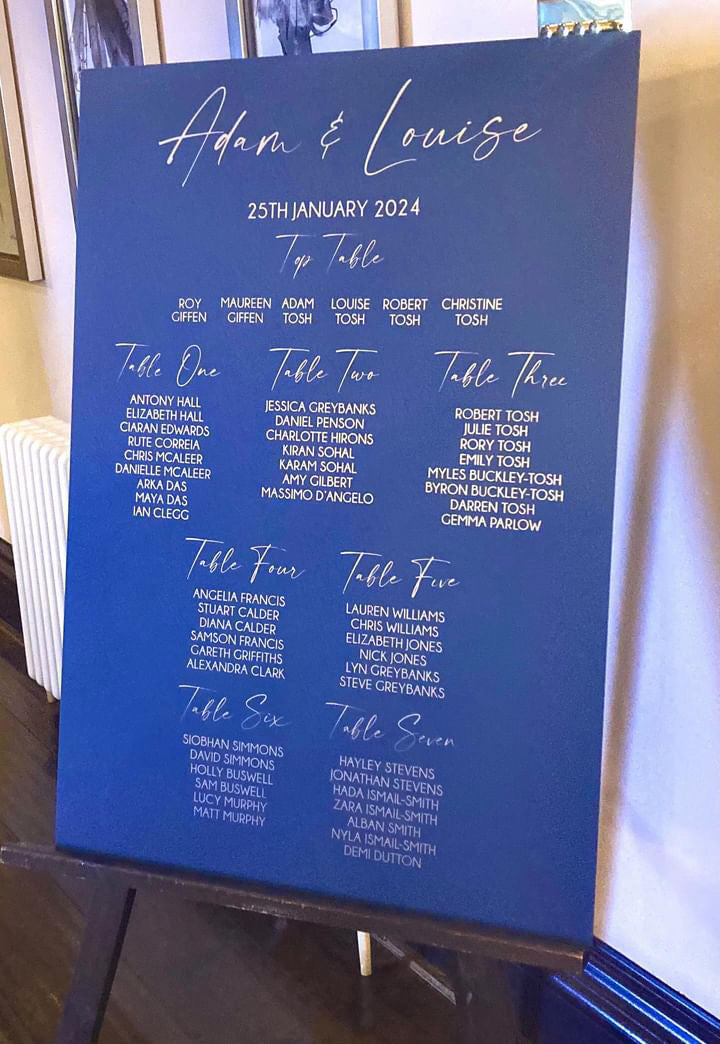 Adam & Louise
25TH JANUARY 2024
Top Table
ROY GIFFEN MAUREEN GIFFEN ADAM TOSH LOUISE TOSH ROBERT TOSH CHRISTINE TOSH
Table One
ANTONY HALL
ELIZABETH HALL
CIARAN EDWARDS
RUTE CORREIA
CHRIS MCALEER
DANIELLE MCALEER
ARKA DAS
MAYA DAS
IAN CLEGG
Table Two
JESSICA GREYBANKS
DANIEL PENSON
CHARLOTTE HIRONS
KIRAN SOHAL
KARAM SOHAL
AMY GILBERT
MASSIMO D'ANGELO
Table Three
ROBERT TOSH
JULIE TOSH
RORY TOSH
EMILY TOSH
MYLES BUCKLEY-TOSH
BYRON BUCKLEY-TOSH
DARREN TOSH
GEMMA PARLOW
Table Four
ANGELIA FRANCIS
STUART CALDER
DIANA CALDER
SAMSON FRANCIS
GARETH GRIFFITHS
ALEXANDRA CLARK
Table Five
LAUREN WILLIAMS
CHRIS WILLIAMS
ELIZABETH JONES
NICK JONES
LYN GREYBANKS
STEVE GREYBANKS
Table Six
SIOBHAN SIMMONS
DAVID SIMMONS
HOLLY BUSWELL
SAM BUSWELL
LUCY MURPHY
MATT MURPHY
Table Seven
HAYLEY STEVENS
JONATHAN STEVENS
HADA ISMAIL-SMITH
ZARA ISMAIL-SMITH
ALBAN SMITH
NYLA ISMAIL-SMITH
DEMI DUTTON